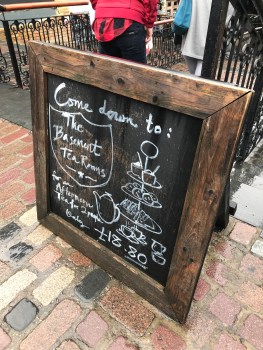 Come down to:
The
Basement
Tea Rooms
for
Afternoon
Tea for 2
Only
£18.80